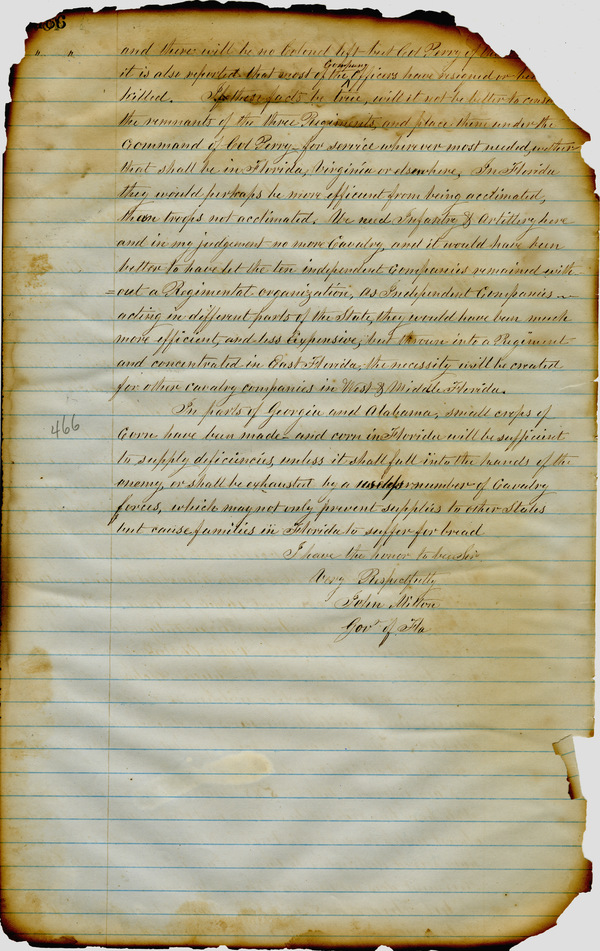 " "
and there will be no Colonel left but Col Perry of the
Company
it is also reported that most of the Officers have resigned or been
killed. If these facts be true, will it not be better to
the remnants of the three Regiments, and place them under the
Command of Col Perry for service wherever most needed, wether
that shall be in Florida, Virginia or elsewhere. In Florida
they would perhaps be more efficient from being acclimated,
than troops not acclimated. We need Infantry & Artillery here
and in my judgement no more Cavalry, and it would have been
better to have let the ten independent Companies remained with-
=out a Regimental organization, as Independent Companies
acting in different parts of the State, they would have been much
more efficient, and less Expensive; but thrown into a Regiment
and concentrated in East Florida, the necessity will be created
for other cavalry companies in West & Middle Florida.
In parts of Georgia and Alabama, small crops of
466
Corn have been made and corn in Florida will be sufficient
to supply deficiencies, unless it shall fall into the hands of the
enemy, or shall be exhausted by a useless number of Cavalry
forces, which may not only prevent supplies to other States
but cause families in Florida to suffer for bread
I have the honor to be Sir
Very Respectfully
John Milton
Govr of Fla